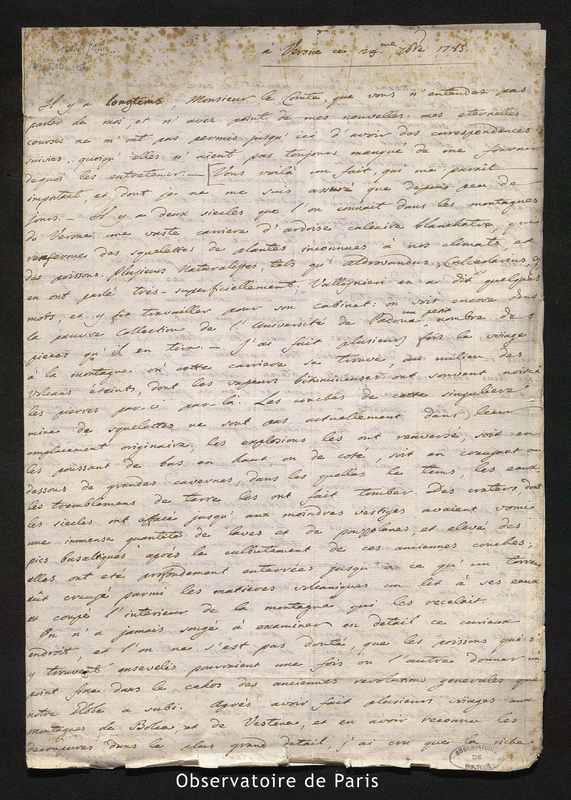 a Verone ce 29me 7bre 1785
Il y a longtems, Monsieur le Comte, que vous n'entendez pas
parler de moi et n'avez point de mes nouvelles. mes eternelles
courses ne m'ont pas permis jusqu'ici d'avoir des correspondences
suivies, quoiqu'elles n'aient pas toujours manqué de me fournir
dequoi les entretenir. — Vous voilà un fait, qui me parait
important, et dont je ne me suis assuré que depuis peu de
jours. — Il y a deux siecles que l'on connait dans les montagnes
de Verone une vaste carriere d'ardoise calcaire blanchatre, que
renferme des squelettes de plantes inconnues à nos climats et
des poissons. Plusieurs Naturalistes, tels qu'Aldrovandus, Calceolarius,
en ont parlé très-superficiellement; Vallisnieri en a dit quelques
mots, et y fit travailler pour son cabinet: on voit encore dans
la pauvre collection de l'Université de Padoue un petit nombre des
pieces qu'il en tira — j'ai fait plusieurs fois le voiage
à la montagne où cette carriere se trouve, au milieu des
Volcans éteints, dont les vapeurs bitumineuses ont souvent noirci
les pierres par-ci par-là. Les couches de cette singuliere
mine de squelettes ne sont pas actuellement dans leur
emplacement originaire; les explosions les ont renversé, soit en
les poussant de bas en haut ou de coté, soit en creusant au
dessous de grandes cavernes, dans les quelles le tems, les eaux,
les tremblemens de terre les ont fait tomber. Des crateres dont
les siecles ont effacé jusqu'aux moindres vestiges avaient vomi
une immense quantité de laves et de pouzzolanes, et elevé des
pics basaltiques après le culbutement de ces anciennes couches;
elles ont eté profondement enterrées jusqu'à ce qu'un torrent
eût creusé parmi les matieres volcaniques un lit à ses eaux
et coupé l'interieur de la montagne qui les recelait.
On n'a jamais songé à examiner en detail ce curieux
endroit, et l'on ne s'est pas douté, que les poissons qui s'
y trouvent ensevelis pourraient une fois ou l'autre donner un
point fixe dans le cahos des anciennes revolutions generales que
notre Globe a subi. Après avoir fait plusieurs voiages aux
montagnes de Bolca, et de Vestena, et en avoir reconnu les
decouvertes dans le plus grand detail, j'ai cru que la riche
OBSERVATOIRE DE PARIS
Observatoire de Paris